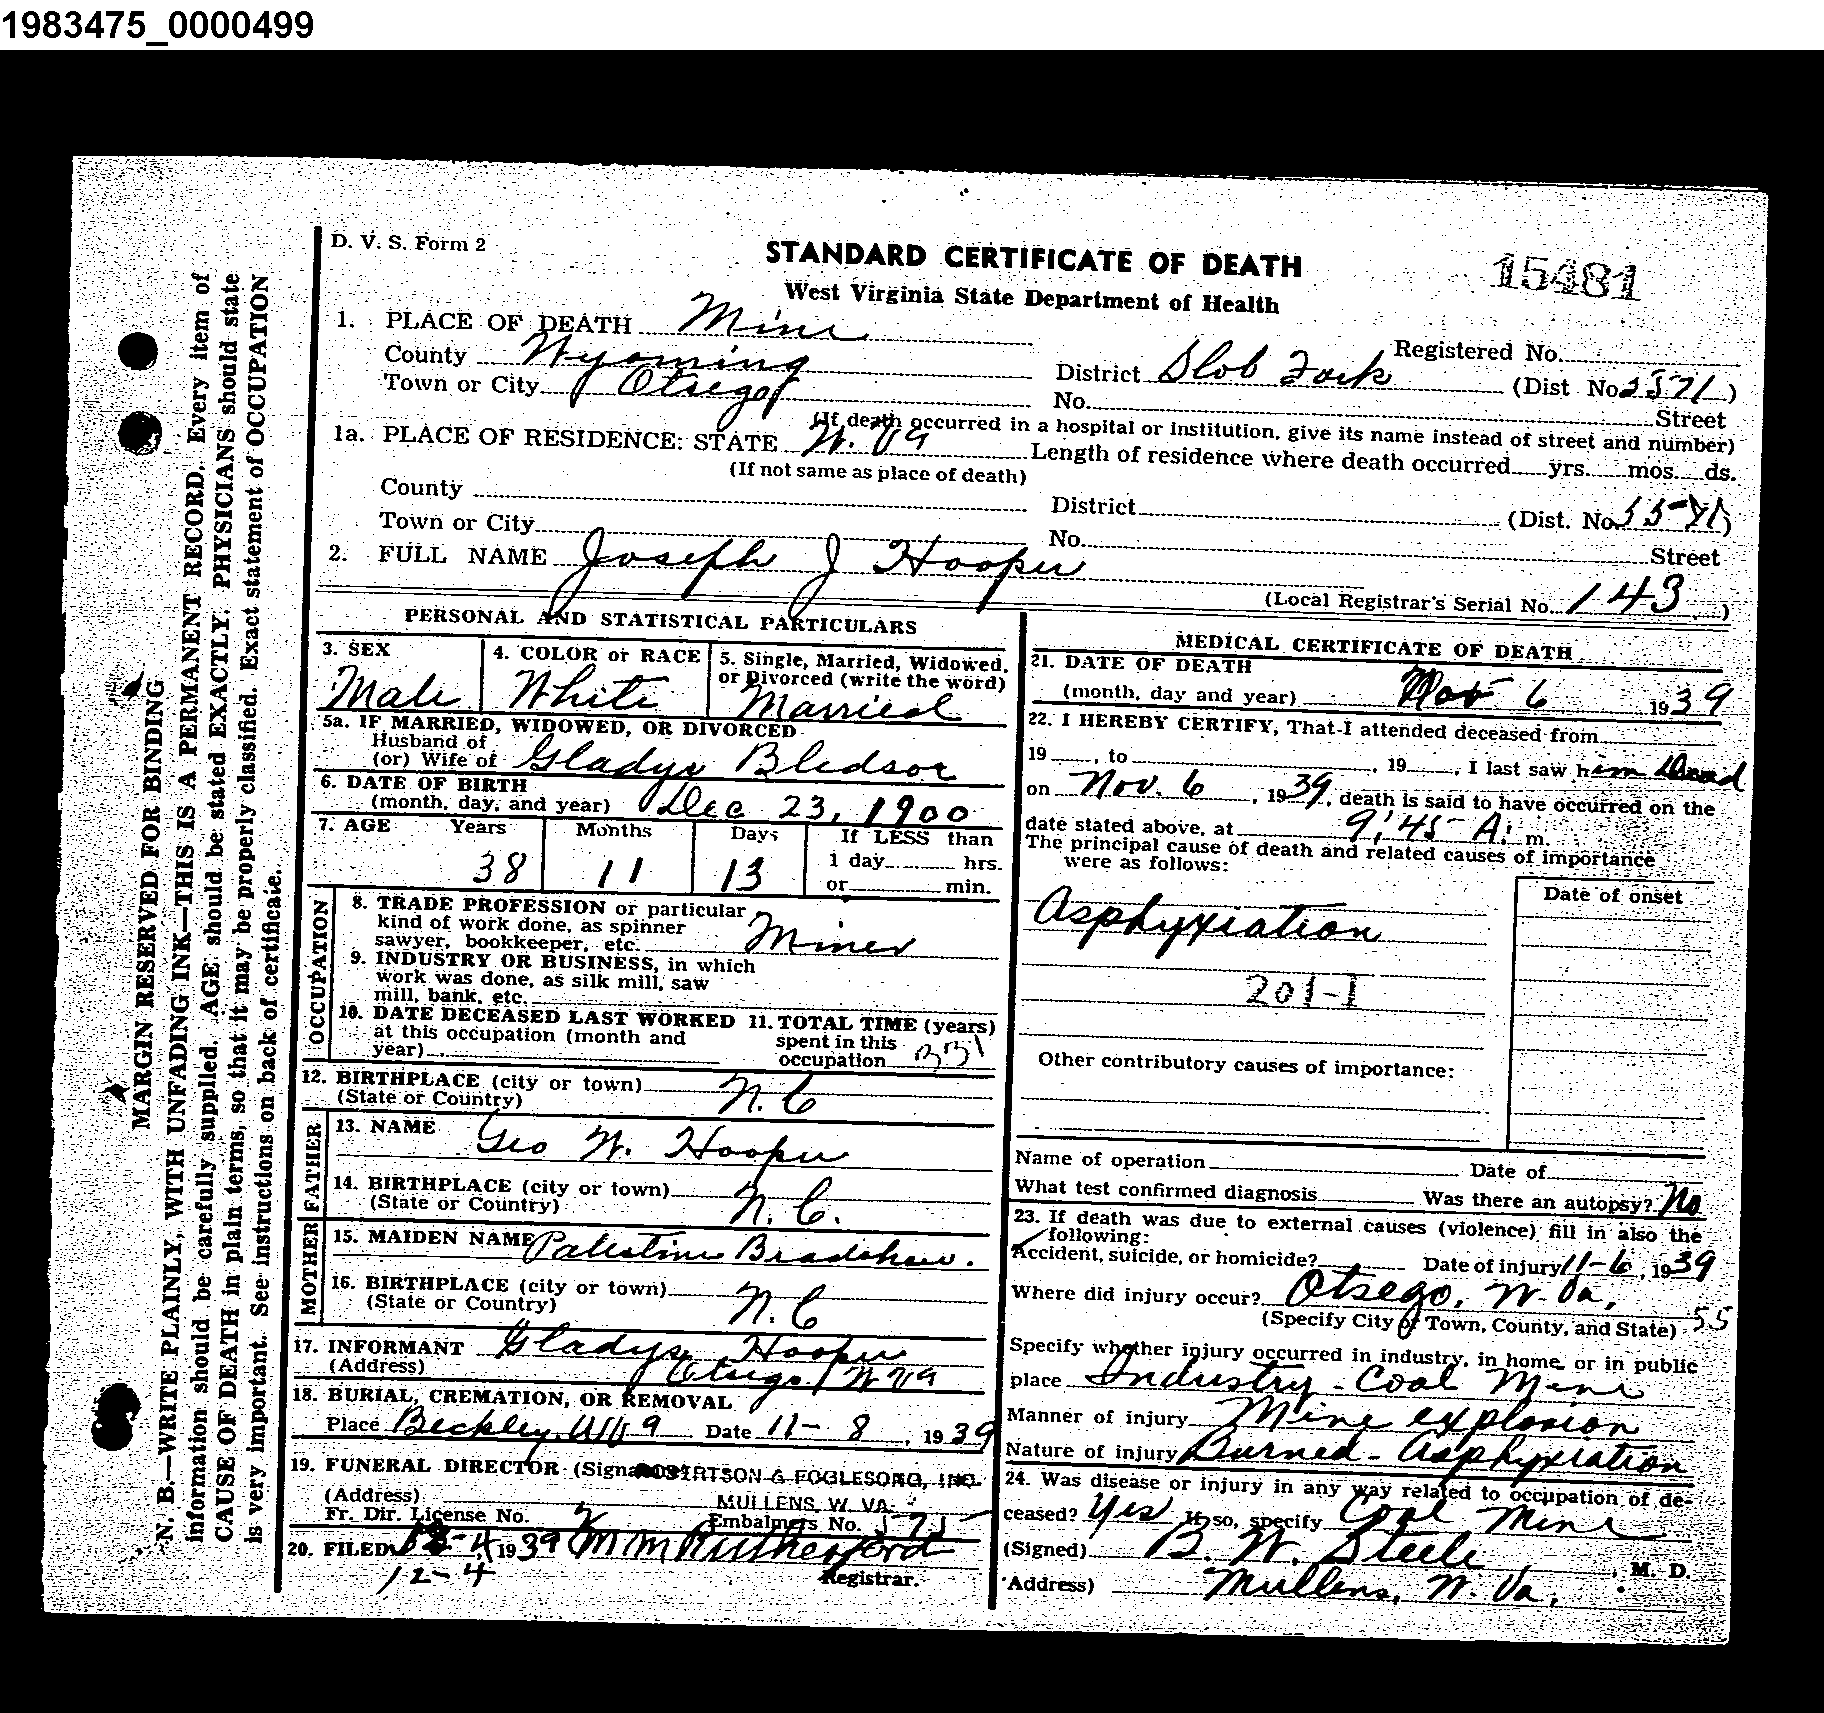 1983475_0000499
D. V. S. Form 2
STANDARD CERTIFICATE OF DEATH
15481
West Virginia State Department of Health
1. PLACE OF DEATH Mine
Registered No.
County Wyoming
District Slab Fork (Dist No. 5571)
Town or City Otsego
No. Street
(If death occurred in a hospital or institution, give its name instead of street and number)
1a. PLACE OF RESIDENCE: STATE W. Va
Length of residence where death occurred yrs. mos. ds.
(If not same as place of death)
County
District (Dist. No. 55-71)
Town or City
No. Street
2. FULL NAME Joseph J Hooper
(Local Registrar's Serial No. 143)
PERSONAL AND STATISTICAL PARTICULARS
3. SEX
Male
4. COLOR or RACE
White
5. Single, Married, Widowed,
or Divorced (write the word)
Married
5a. IF MARRIED, WIDOWED, OR DIVORCED
Husband of
(or) Wife of Gladys Bledsoe
6. DATE OF BIRTH
(month, day, and year) Dec 23, 1900
7. AGE Years Months Days If LESS than
1 day hrs.
38 11 13
or min.
OCCUPATION
8. TRADE PROFESSION or particular
kind of work done, as spinner
sawyer, bookkeeper, etc. Miner
9. INDUSTRY OR BUSINESS, in which
work was done, as silk mill, saw
mill, bank, etc.
10. DATE DECEASED LAST WORKED
at this occupation (month and
year)
11. TOTAL TIME (years)
spent in this
occupation
12. BIRTHPLACE (city or town) N. C
(State or Country)
FATHER
13. NAME Geo W. Hooper
14. BIRTHPLACE (city or town) N. C.
(State or Country)
MOTHER
15. MAIDEN NAME Palestine Bradshaw.
16. BIRTHPLACE (city or town) N. C
(State or Country)
17. INFORMANT Gladys Hooper
(Address) Otsego, W Va
18. BURIAL, CREMATION, OR REMOVAL
Place Beckley, W Va Date 11-8, 1939
19. FUNERAL DIRECTOR (Signa ROBERTSON & FOGLESONG, INC.
(Address) MULLENS, W. VA.
Fr. Dir. License No. Embalmers No.
20. FILED 12-4 1939 M M Rutherford
12-4
Registrar.
MEDICAL CERTIFICATE OF DEATH
21. DATE OF DEATH
(month, day and year) Nov 6 1939
22. I HEREBY CERTIFY, That I attended deceased from
19 , to , 19 , I last saw him Dead
on Nov. 6, 1939, death is said to have occurred on the
date stated above, at 9:45 A. m.
The principal cause of death and related causes of importance
were as follows:
Date of onset
Asphyxiation
201-1
Other contributory causes of importance:
Name of operation Date of
What test confirmed diagnosis Was there an autopsy? No
23. If death was due to external causes (violence) fill in also the
following:
Accident, suicide, or homicide? Date of injury 11-6, 1939
Where did injury occur? Otsego, W. Va.
(Specify City or Town, County, and State) 55
Specify whether injury occurred in industry, in home, or in public
place Industry - Coal Mine
Manner of injury Mine explosion
Nature of injury Burned - Asphyxiation
24. Was disease or injury in any way related to occupation of de-
ceased? Yes If so, specify Coal Mine
(Signed) B. W. Steele, M. D.
Address) Mullens, W. Va.
MARGIN RESERVED FOR BINDING
N. B.—WRITE PLAINLY, WITH UNFADING INK—THIS IS A PERMANENT RECORD. Every item of
information should be carefully supplied. AGE should be stated EXACTLY. PHYSICIANS should state
CAUSE OF DEATH in plain terms, so that it may be properly classified. Exact statement of OCCUPATION
is very important. See instructions on back of certificate.